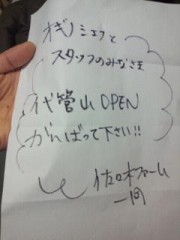 オギノシェフと
スタッフのみなさま
代官山 OPEN
がんばって下さい!!
佐々木ファーム
一同